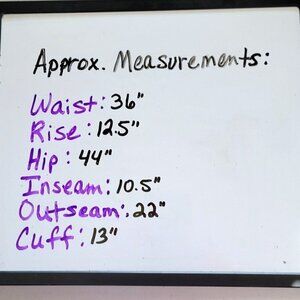 Approx. Measurements:
Waist: 36"
Rise: 12.5"
Hip: 44"
Inseam: 10.5"
Outseam: 22"
Cuff: 13"